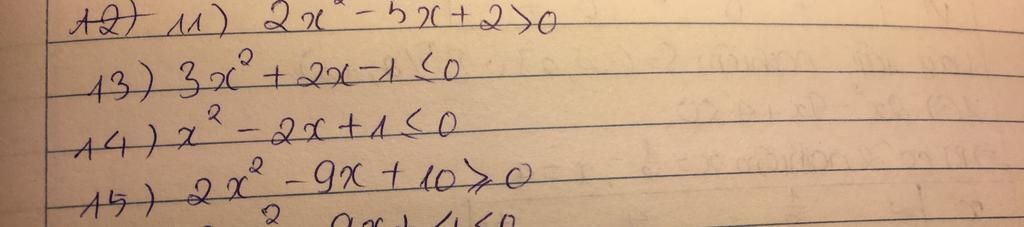 12) 11) 2x² - 5x + 2 > 0
13) 3x² + 2x - 1 ≤ 0
14) x² - 2x + 1 ≤ 0
15) 2x² - 9x + 10 ≥ 0